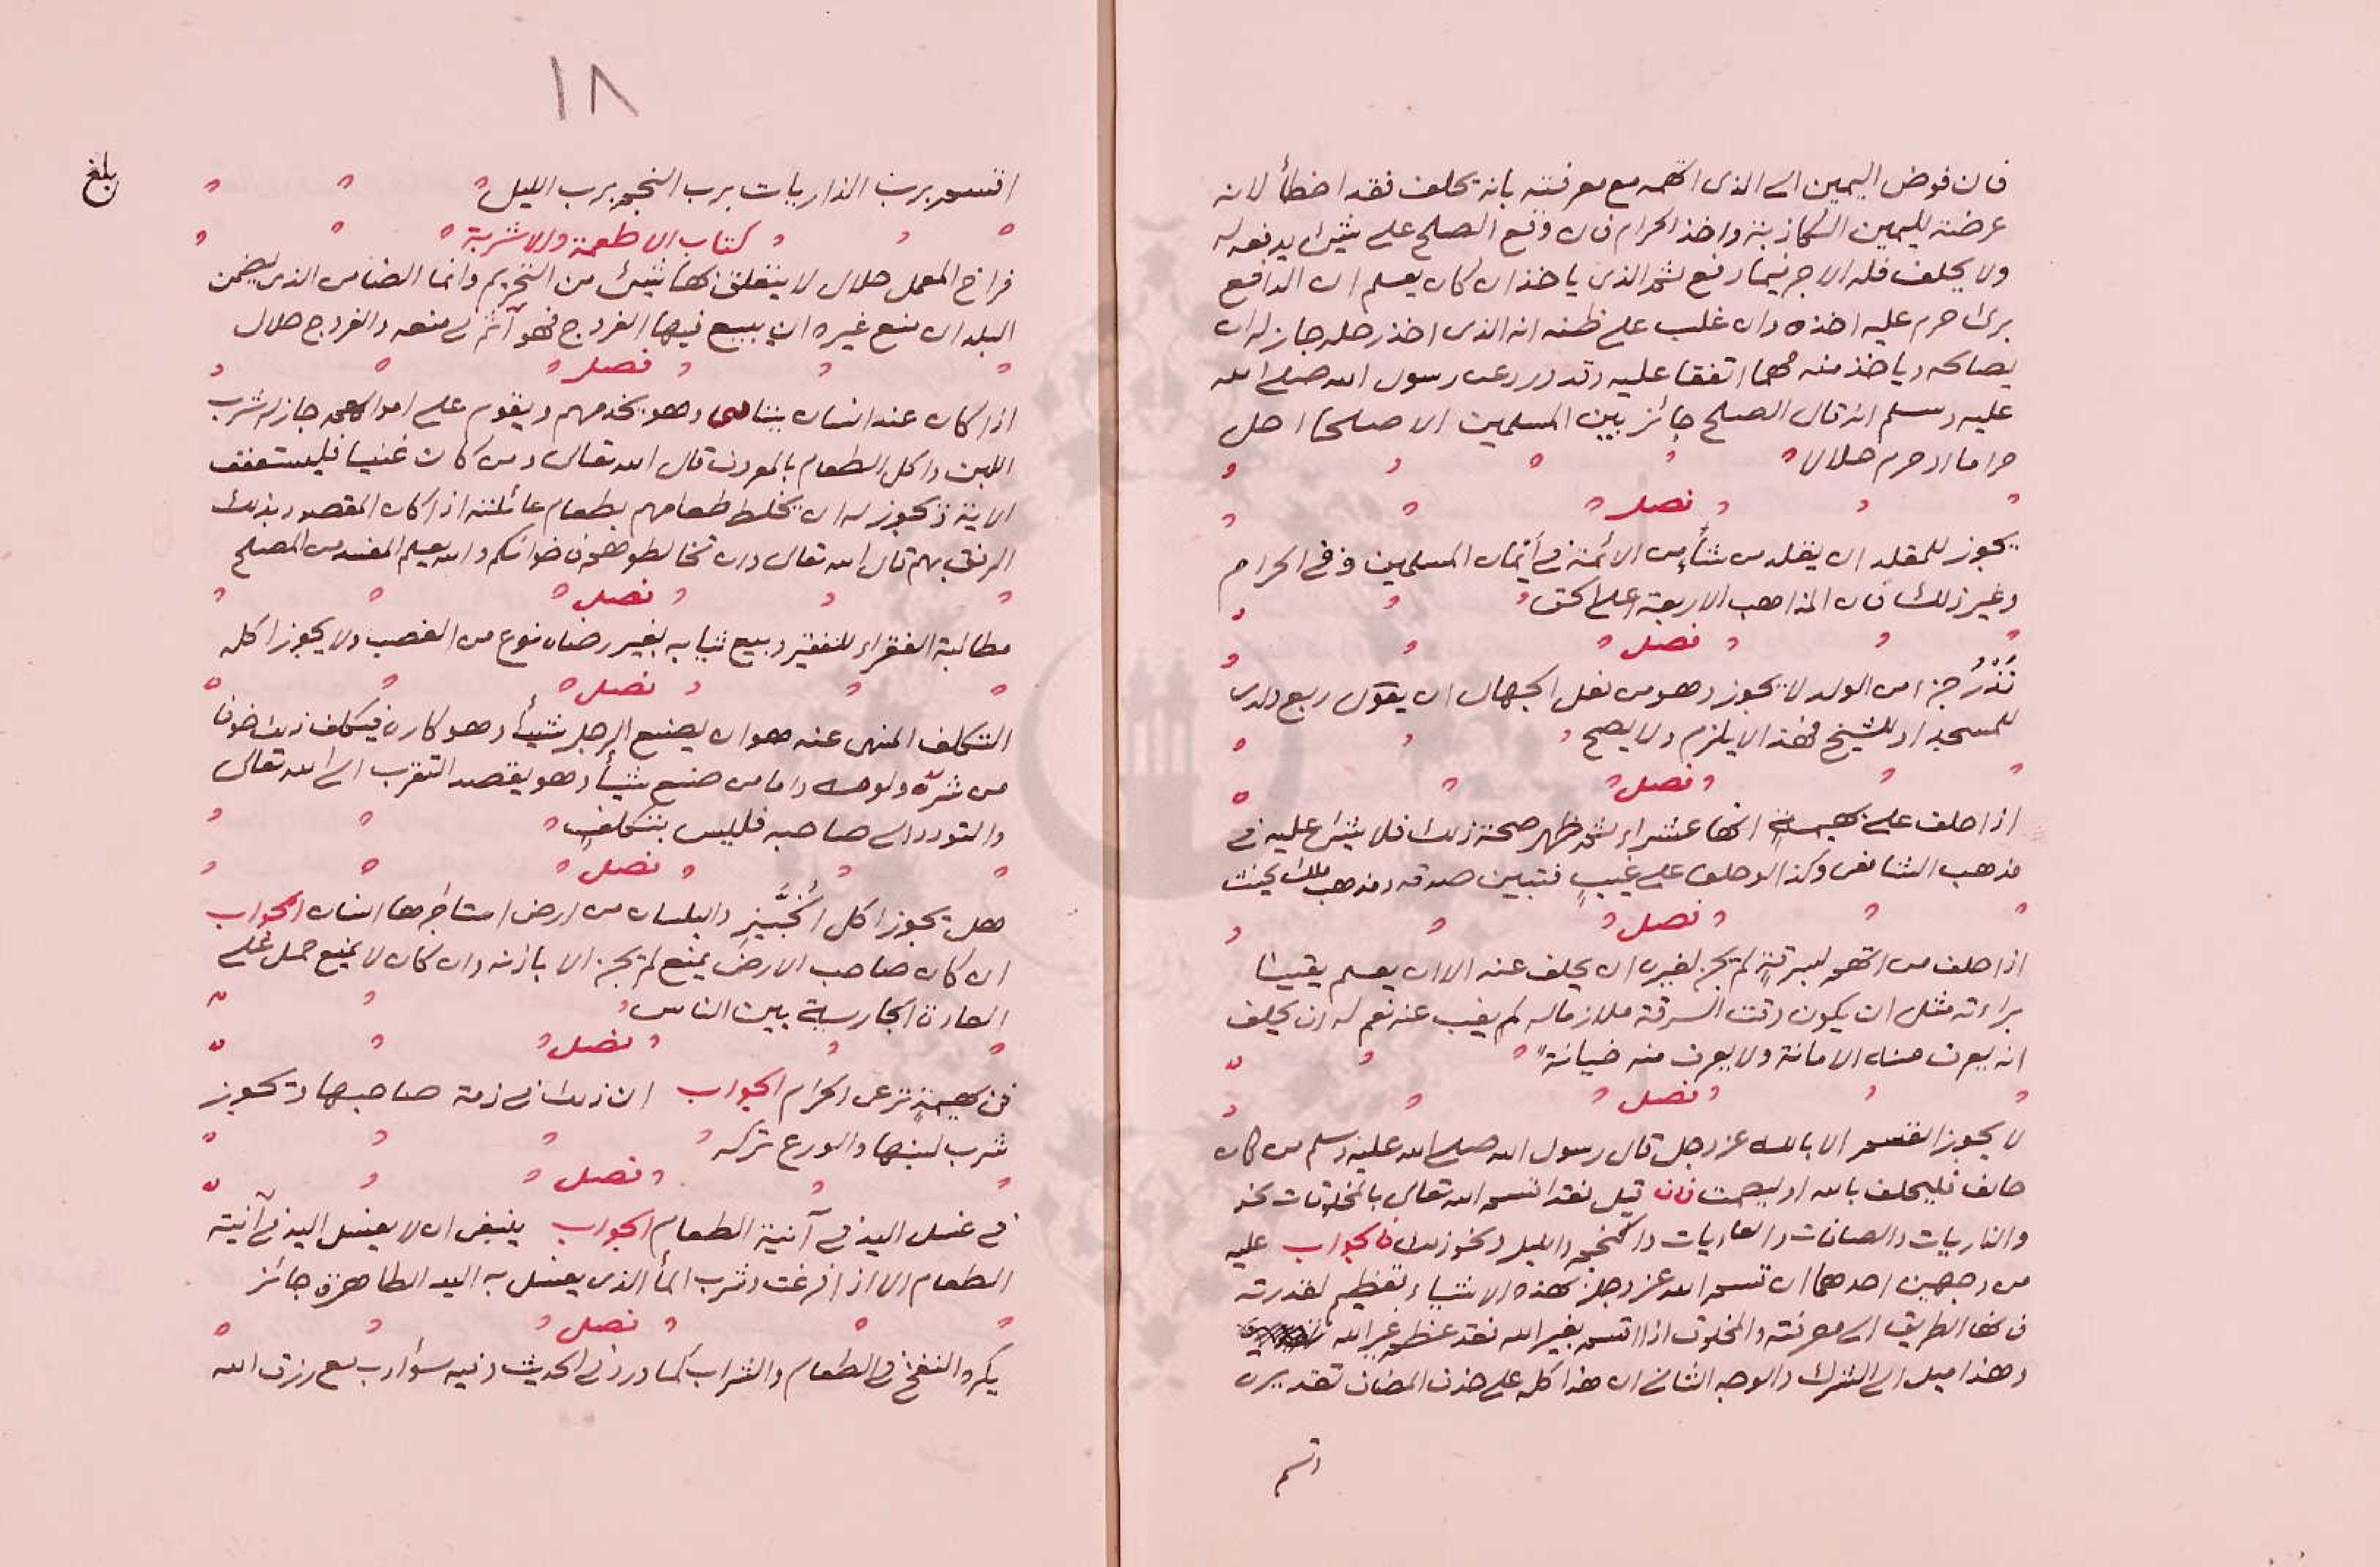 فان فوض اليمين الى الذى اتهمه مع معرفته بانه يحلف فقد اخطأ لانه
عرضة لليمين الكاذبة واخذ الحرام فان وقع الصلح على شئ يدفعه له
ولا يحلف فله الاجر فيما دفع ثم الذى ياخذ ان كان يعلم ان الدافع
برئ حرم عليه اخذه وان غلب على ظنه انه الذى اخذ رحله جاز له ان
يصالحه وياخذ منه مهما اتفقا عليه وقد ورد عن رسول الله صلى الله
عليه وسلم انه قال الصلح جائز بين المسلمين الا صلحا احل
حراما او حرم حلالا
فصل
يجوز للمقلد ان يقلد من شاء من الأئمة فى أيمان المسلمين وفى الحرام
وغير ذلك فان المذاهب الاربعة على الحق
فصل
نَذْرُ جزء من الولد لا يجوز وهو من فعل الجهال ان يقول ربع ولدى
للمسجد او للشيخ فهذا لا يلزم ولا يصح
فصل
اذا حلف على بهيمة انها عشراء ثم ظهر صحة ذلك فلا شئ عليه فى
مذهب الشافعى وكذا لو حلف على غيبٍ فتبين صدقه ومذهب مالك يحنث
فصل
اذا حلف من اتهم بسرقةٍ لم يجز لغيره ان يحلف عنه الا ان يعلم يقينا
براءته مثل ان يكون وقت السرقة ملازما له لم يغب عنه نعم له ان يحلف
انه يعرف منه الامانة ولا يعرف منه خيانة
فصل
لا يجوز القسم الا بالله عز وجل قال رسول الله صلى الله عليه وسلم من كان
حالف فليحلف بالله او ليصمت فان قيل فقد اقسم الله تعالى بالمخلوقات نحو
والذاريات والصافات والعاديات والنجم والليل ونحو ذلك فالجواب عليه
من وجهين احدهما ان قسم الله عز وجل بهذه الاشياء تعظيم لقدرته
فانها الطريق الى معرفته والمخلوق اذا اقسم بغير الله فقد عظم غير الله
وهذا ميل الى الشرك والوجه الثانى ان هذا كله على حذف المضاف تقديره
اقسم
١٨
بلغ
اقسم برب الذاريات برب النجم برب الليل
كتاب الاطعمة والاشربة
فراخ المعمل حلال لا يتعلق بها شئ من التحريم وانما الضامن الذى يضمن
البلد ان منع غيره ان يبيع فيها الفروج فهو آثم فى منعه والفروج حلال
فصل
اذا كان عند انسان يتامى وهو يخدمهم ويقوم على اموالهم جاز له شرب
اللبن واكل الطعام بالمعروف قال الله تعالى ومن كان غنيا فليستعفف
الاية ويجوز له ان يخلط طعامهم بطعام عائلته اذا كان المقصود بذلك
الرفق بهم قال الله تعالى وان تخالطوهم فاخوانكم والله يعلم المفسد من المصلح
فصل
مطالبة الفقراء للفقير وبيع ثيابه بغير رضاه نوع من الغصب ولا يجوز اكله
فصل
التكلف المنهى عنه هو ان يصنع الرجل شيأ وهو كاره فيكلف ذلك خوفا
من شره ولومه واما من صنع شيأ وهو يقصد التقرب الى الله تعالى
والتودد الى صاحبه فليس بتكلفٍ
فصل
هل يجوز اكل الخُبَّيز والبلسان من ارض استأجرها انسان الجواب
ان كان صاحب الارض يمنع لم يجز الا باذنه وان كان لا يمنع حمل على
العادة الجارية بين الناس
فصل
فى بهيمة ترعى الحرام الجواب ان ذلك فى ذمة صاحبها ويجوز
شرب لبنها والورع تركه
فصل
فى غسل اليد فى آنية الطعام الجواب ينبغى ان لا يغسل اليد فى آنية
الطعام الا اذا فرغت وشرب المأ الذى يغسل به اليد الطاهرة جائز
فصل
يكره النفخ فى الطعام والشراب كما ورد فى الحديث وفيه سؤ ادب مع رزق الله